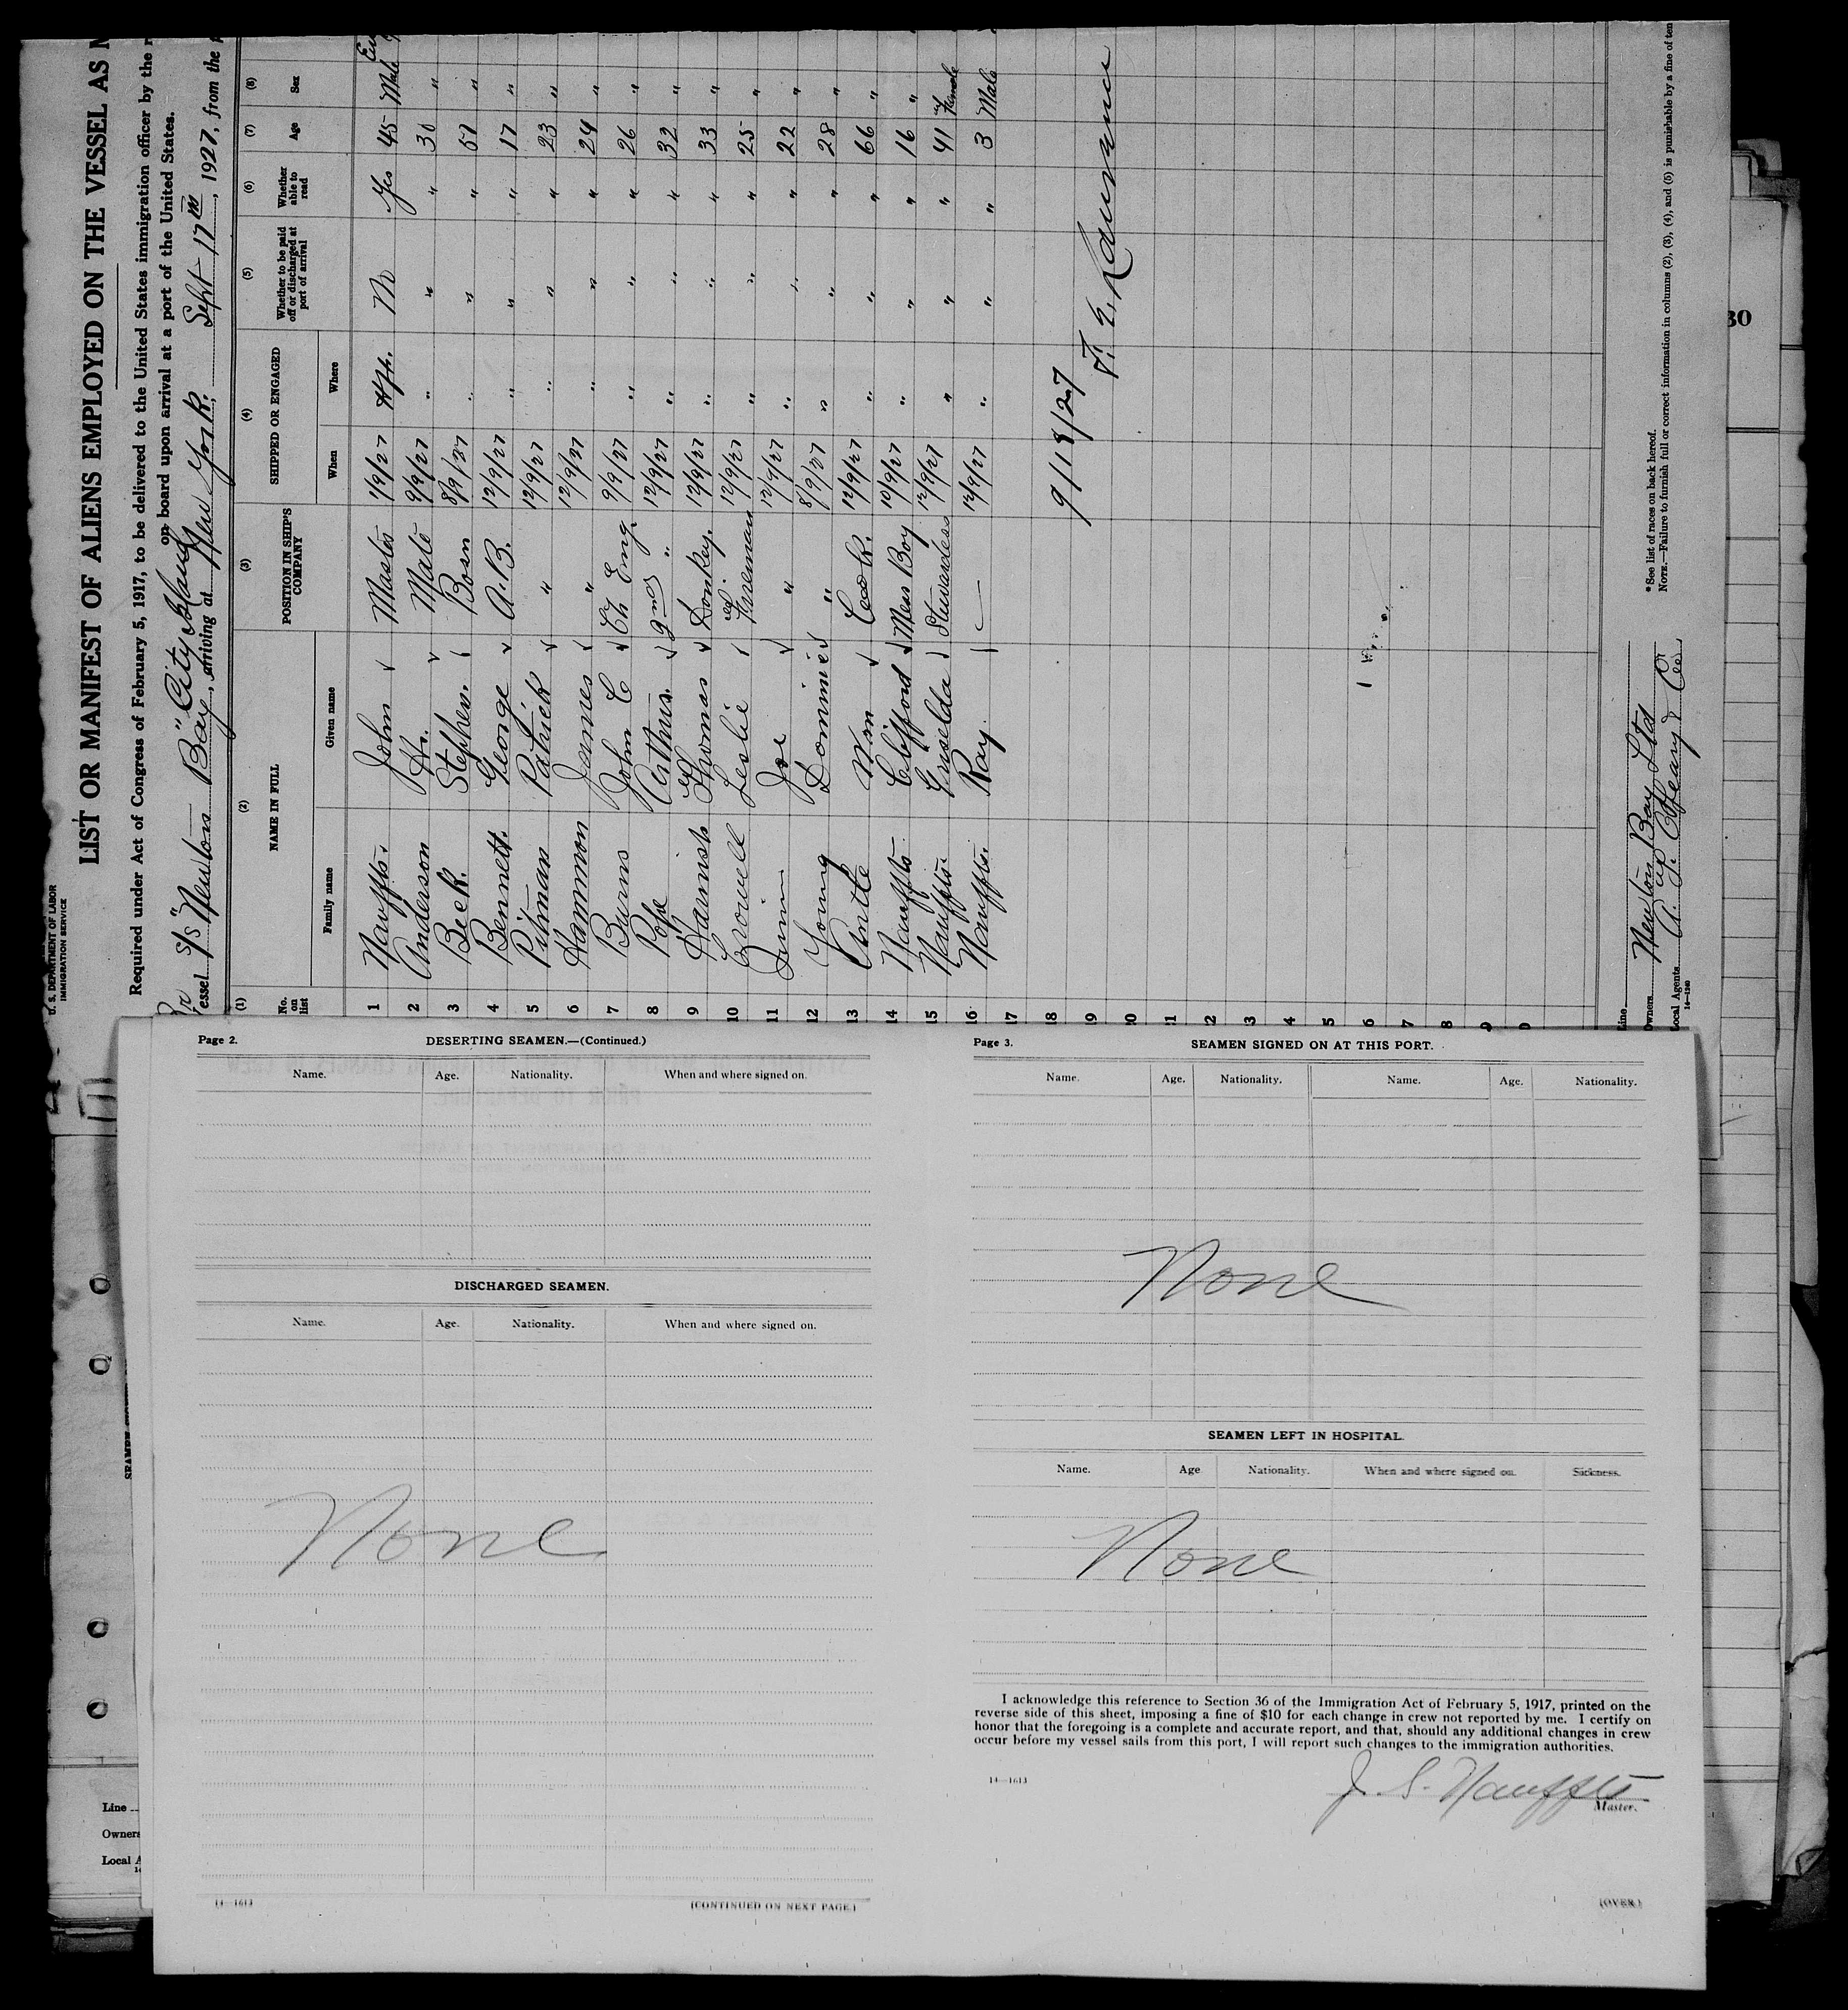 U. S. DEPARTMENT OF LABOR
IMMIGRATION SERVICE
LIST OR MANIFEST OF ALIENS EMPLOYED ON THE VESSEL AS
Required under Act of Congress of February 5, 1917, to be delivered to the United States immigration officer by the
on board upon arrival at a port of the United States.
Vessel S/S "Newton Bay", arriving at New York, Sept 17th, 1927, from the
(1) (2) (3) (4) (5) (6) (7) (8)
No. on list NAME IN FULL POSITION IN SHIP'S COMPANY SHIPPED OR ENGAGED Whether to be paid off or discharged at port of arrival Whether able to read Age Sex
Family name Given name When Where
1 Nauffts. John Master 1/9/27 Hfx. No Yes 45 Male
2 Anderson H. Mate 9/9/27 " " " 30 "
3 Beck. Stephen. Bosn 8/9/27 " " " 57 "
4 Bennett. George A.B. 12/9/27 " " " 17 "
5 Pitman Patrick " 12/9/27 " " " 23 "
6 Hammon James " 12/9/27 " " " 24 "
7 Burns John C Ch Eng. 9/9/27 " " " 26 "
8 Pope Arthur. 2nd " 12/9/27 " " " 32 "
9 Harnish Thomas Donkey. 12/9/27 " " " 33 "
10 Crowell Leslie Fireman 12/9/27 " " " 25 "
11 Joe " 12/9/27 " " " 22 "
12 Young Dominic " 8/9/27 " " " 28 "
13 Antle Wm Cook. 12/9/27 " " " 66 "
14 Nauffts Clifford Mess Boy 10/9/27 " " " 16 "
15 Nauffts. Griselda Stewardess 12/9/27 " " " 41 Female
16 Nauffts. Ray. — 12/9/27 " " " 3 Male
17
18 9/18/27
19
20
21
22
23
24
25
26
27
28
29
30
Line
Owners Newton Bay Ltd
Local Agents
14—1240
*See list of races on back hereof.
NOTE.—Failure to furnish full or correct information in columns (2), (3), (4), and (5) is punishable by a fine of ten
30
Page 2. DESERTING SEAMEN.—(Continued.)
Name. Age. Nationality. When and where signed on.
DISCHARGED SEAMEN.
Name. Age. Nationality. When and where signed on.
None
14—1613 (CONTINUED ON NEXT PAGE.)
Page 3. SEAMEN SIGNED ON AT THIS PORT.
Name. Age. Nationality. Name. Age. Nationality.
None
SEAMEN LEFT IN HOSPITAL.
Name. Age Nationality. When and where signed on. Sickness.
None
I acknowledge this reference to Section 36 of the Immigration Act of February 5, 1917, printed on the
reverse side of this sheet, imposing a fine of $10 for each change in crew not reported by me. I certify on
honor that the foregoing is a complete and accurate report, and that, should any additional changes in crew
occur before my vessel sails from this port, I will report such changes to the immigration authorities.
14—1613
J. S. Nauffts
Master.
(OVER)
Line
Owners
Local A